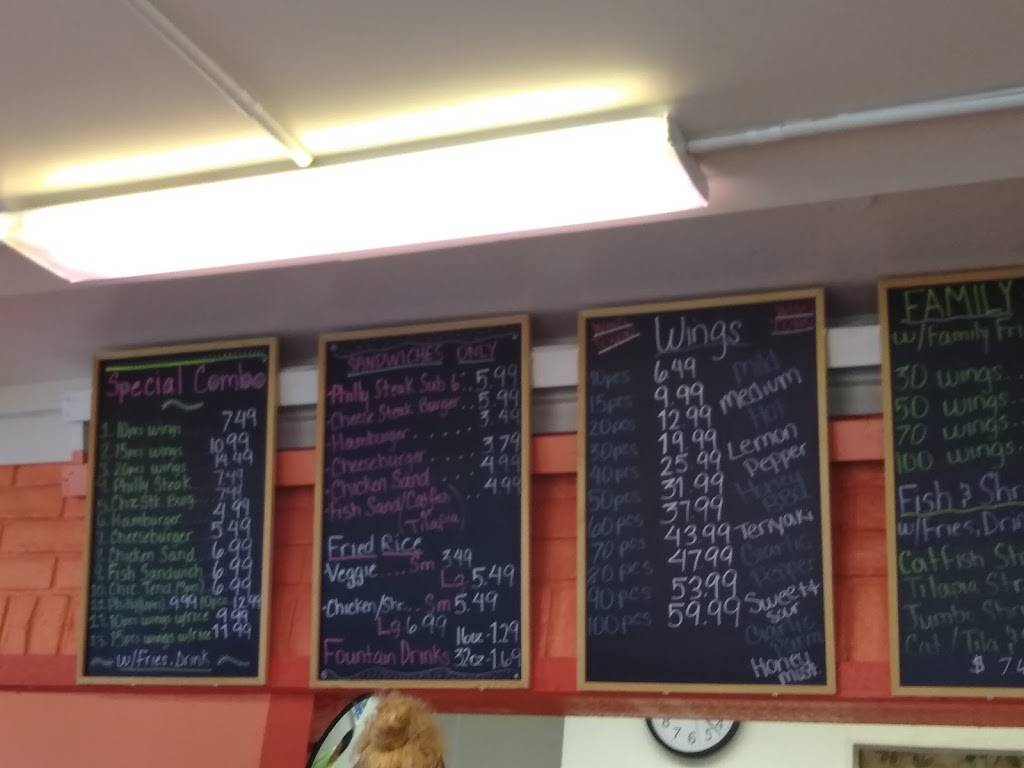 Special Combo
1. 10pcs wings 7.49
2. 15pcs wings 10.99
3. 20pcs wings 14.49
4. Philly Steak 7.49
5. Chz Stk Burg 7.49
6. Hamburger 4.99
7. Cheeseburger 5.49
8. Chicken Sand 6.99
9. Fish Sandwich 6.99
10. Chic Tend 6.99
11. 9.99 12.99
12. 10pcs wings w/rice 9.99
13. 15pcs wings w/rice 11.99
w/Fries, Drink
SANDWICHES ONLY
Philly Steak Sub 6" .. 5.99
Cheese Steak Burger .. 5.99
Hamburger ...... 3.49
Cheeseburger ..... 3.79
Chicken Sand ..... 4.99
Fish Sand/(Catfish ... 4.99
or
Tilapia)
Fried Rice
Veggie .... Sm 3.49
Lg 5.49
Chicken/Shr... Sm 5.49
Lg 6.99
16oz-1.29
Fountain Drinks 32oz-1.69
Wings
10pcs 6.49 Mild
15pcs 9.99 Medium
20pcs 12.99 Hot
30pcs 19.99 Lemon
40pcs 25.99 Pepper
50pcs 31.99 Honey
60pcs 37.99 BBQ
70pcs 43.99 Teriyaki
80pcs 47.99 Garlic
90pcs 53.99 Pepper
100pcs 59.99 Sweet &
Sour
Garlic
Parm
Honey
Must.
FAMILY
w/Family Fri
30 wings...
50 wings..
70 wings..
100 wings.
Fish & Shr
w/Fries, Drin
Catfish St
Tilapia Str
Jumbo Shr
Cat/Tila &
$ 7.4
8 7 6 5 4